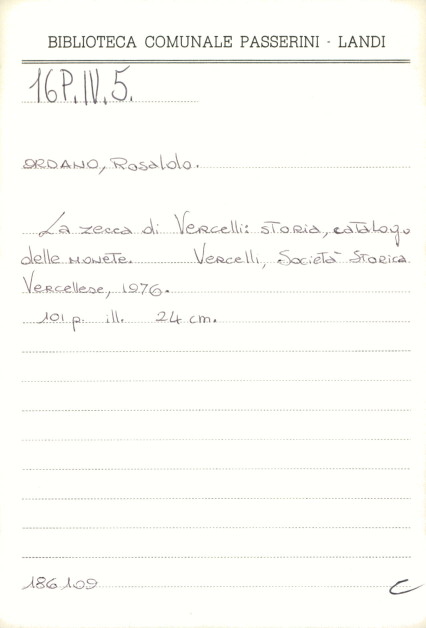 BIBLIOTECA COMUNALE PASSERINI - LANDI
16P.IV.5.
ORDANO, Rosaldo.
La zecca di Vercelli: storia, catalogo
delle monete. Vercelli, Società Storica
Vercellese, 1976.
101 p. ill. 24 cm.
186109 C